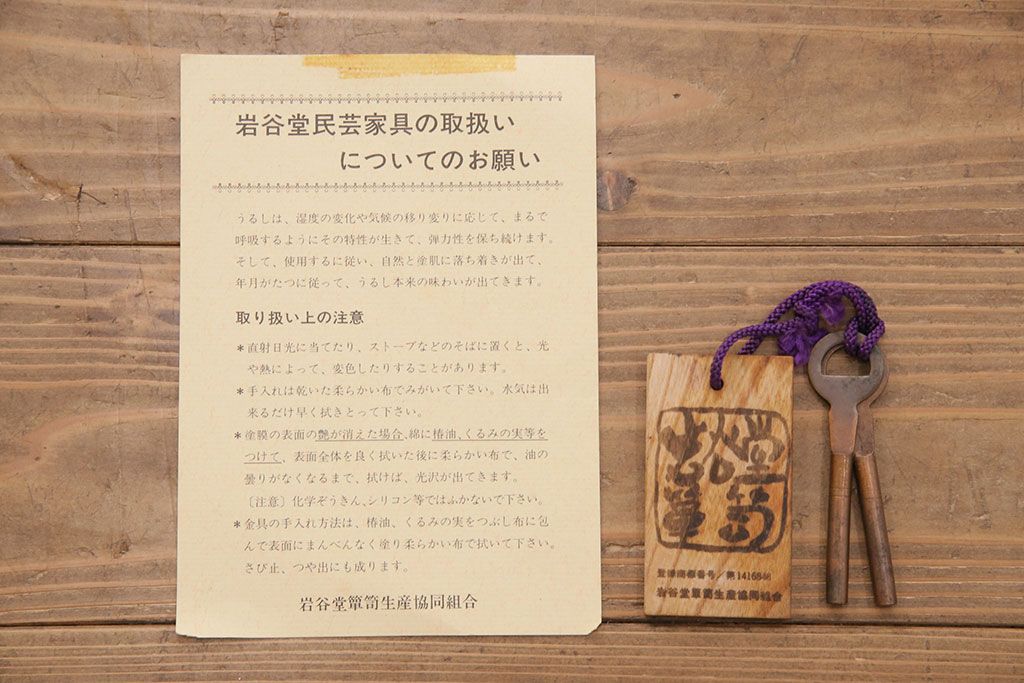 岩谷堂民芸家具の取扱い
についてのお願い
うるしは、湿度の変化や気候の移り変りに応じて、まるで
呼吸するようにその特性が生きて、弾力性を保ち続けます。
そして、使用するに従い、自然と塗肌に落ち着きが出て、
年月がたつに従って、うるし本来の味わいが出てきます。
取り扱い上の注意
*直射日光に当てたり、ストーブなどのそばに置くと、光
や熱によって、変色したりすることがあります。
*手入れは乾いた柔らかい布でみがいて下さい。水気は出
来るだけ早く拭きとって下さい。
*塗膜の表面の艶が消えた場合、綿に椿油、くるみの実等を
つけて、表面全体を良く拭いた後に柔らかい布で、油の
曇りがなくなるまで、拭けば、光沢が出てきます。
〔注意〕化学ぞうきん、シリコン等ではふかないで下さい。
*金具の手入れ方法は、椿油、くるみの実をつぶし布に包
んで表面にまんべんなく塗り柔らかい布で拭いて下さい。
さび止、つや出にも成ります。
岩谷堂簞笥生産協同組合
岩谷堂簞笥
登録商標番号/第1416846
岩谷堂簞笥生産協同組合